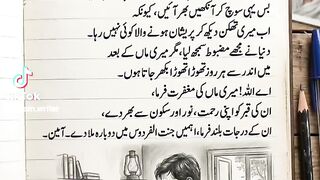 بس یہی سوچ کر آنکھیں بھر آئیں، کیونکہ
اب میری تھکن دیکھ کر پریشان ہونے والا کوئی نہیں رہا۔
دنیا نے مجھے مضبوط سمجھ لیا، مگر میری ماں کے بعد
میں اندر سے ہر روز تھوڑا تھوڑا بکھر جاتا ہوں۔
اے اللہ! میری ماں کی مغفرت فرما،
ان کی قبر کو اپنی رحمت، نور اور سکون سے بھر دے،
ان کے درجات بلند فرما، اور ہمیں جنت الفردوس میں دوبارہ ملا دے۔ آمین۔